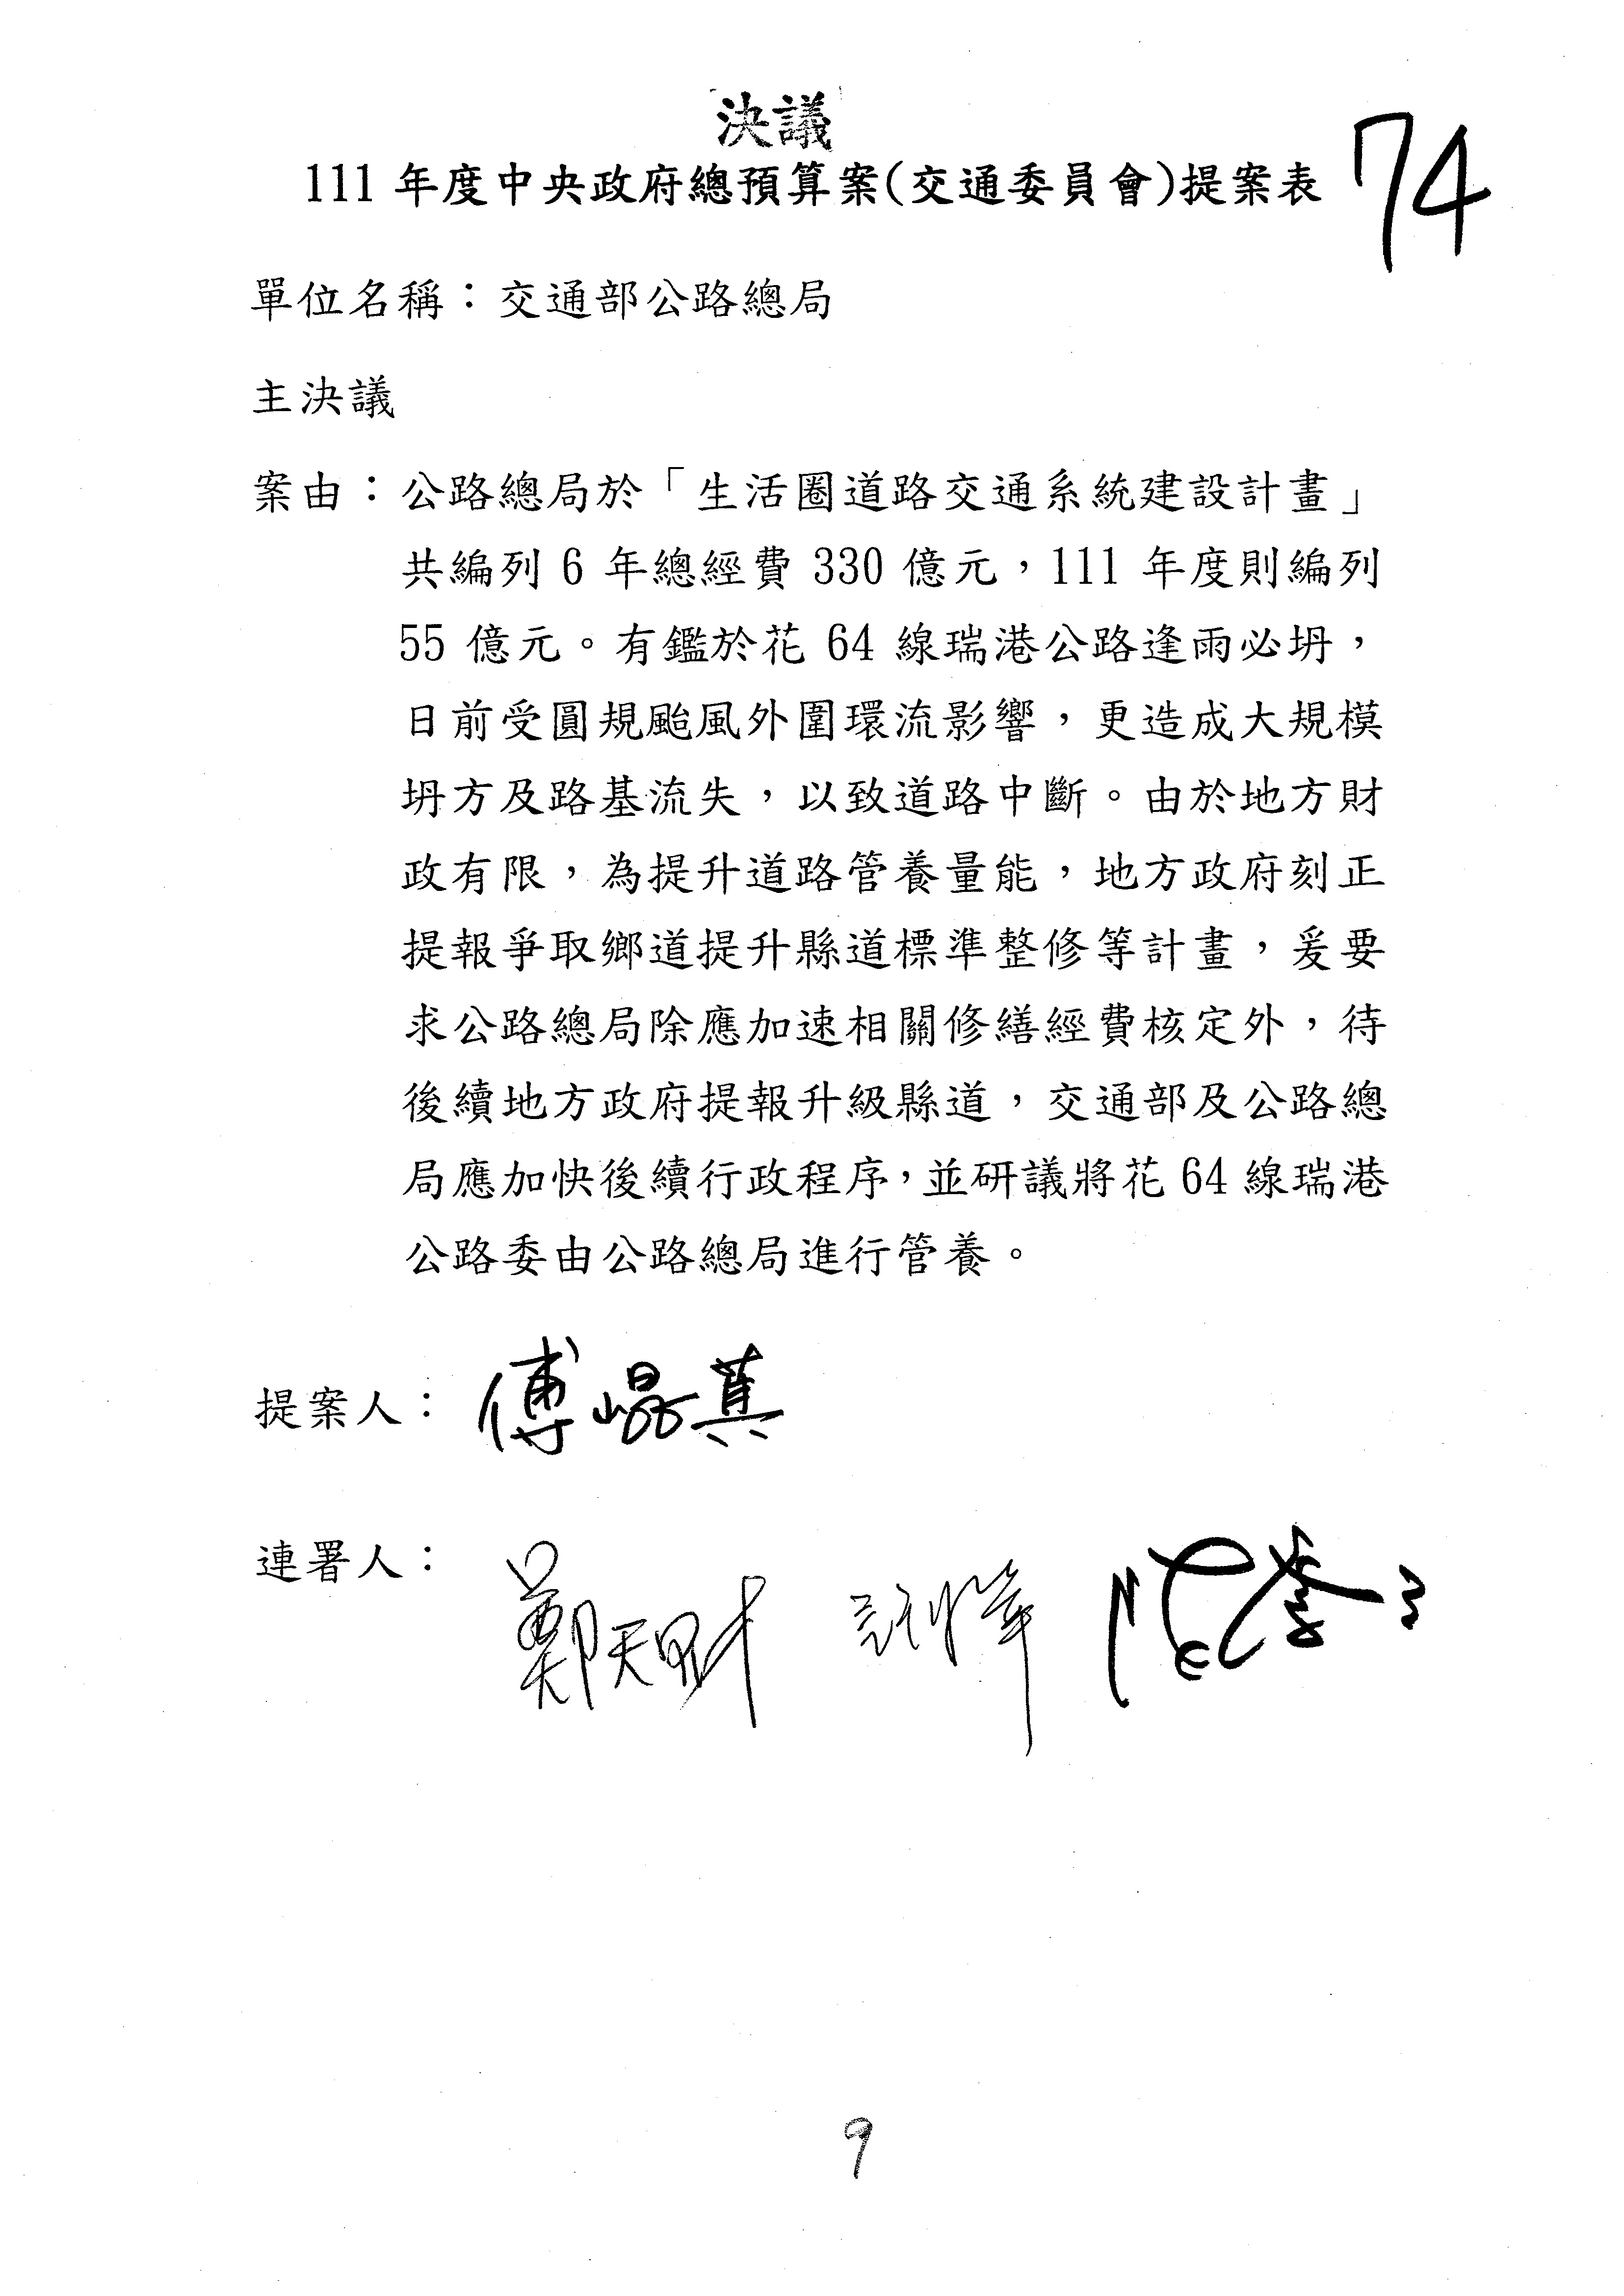 決議
111 年度中央政府總預算案(交通委員會)提案表
74
單位名稱：交通部公路總局
主決議
案由：公路總局於「生活圈道路交通系統建設計畫」
共編列 6 年總經費 330 億元，111 年度則編列
55 億元。有鑑於花 64 線瑞港公路逢雨必坍，
日前受圓規颱風外圍環流影響，更造成大規模
坍方及路基流失，以致道路中斷。由於地方財
政有限，為提升道路管養量能，地方政府刻正
提報爭取鄉道提升縣道標準整修等計畫，爰要
求公路總局除應加速相關修繕經費核定外，待
後續地方政府提報升級縣道，交通部及公路總
局應加快後續行政程序，並研議將花 64 線瑞港
公路委由公路總局進行管養。
提案人：傅崐萁
連署人：鄭天財
9